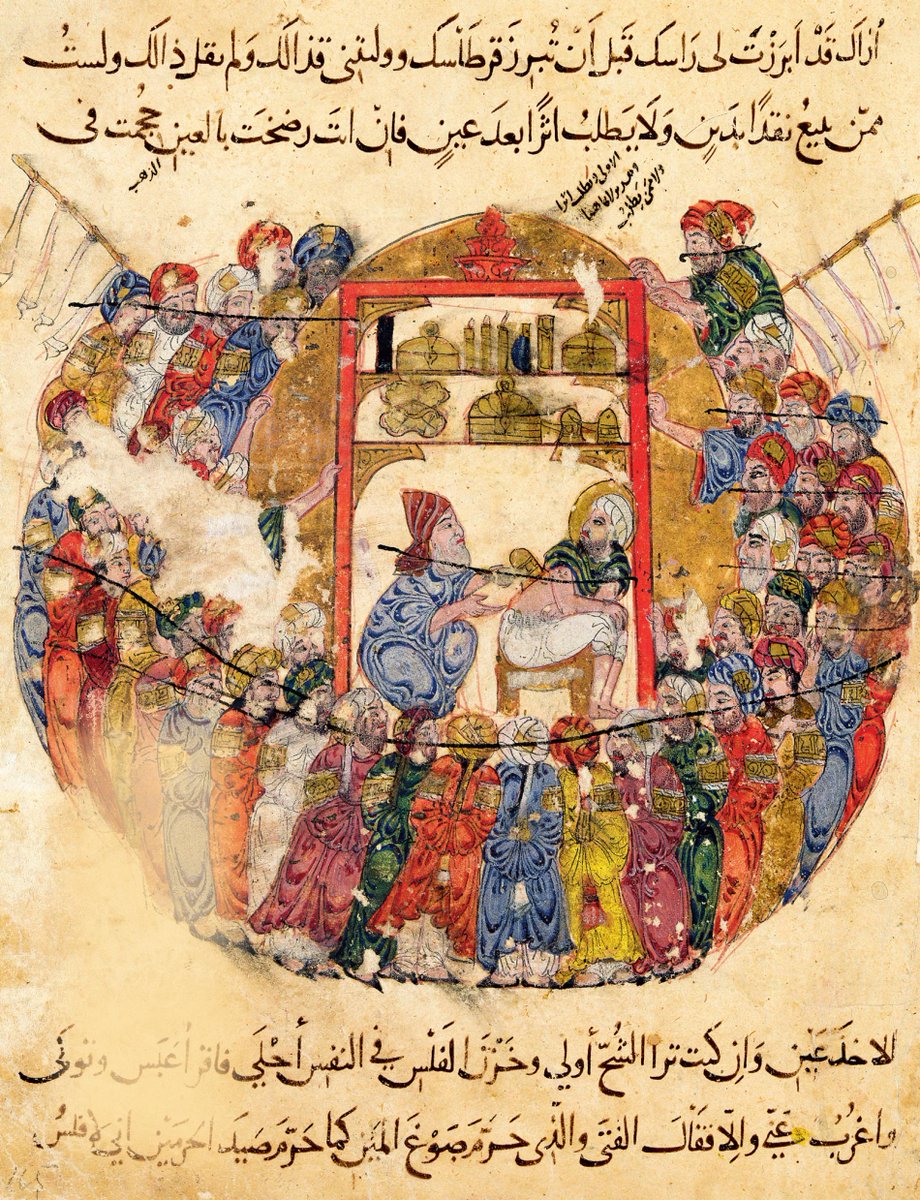 أراك قَدْ أبرَزْتَ لى رَاسك قَبل أنْ تُبرز قرطَاسك وولیتنى قذالك وَلم يقل ذالك ولستُ
ممّن يبيعُ نقدًا بدَين وَلَا يَطلبُ اثرًا بعدَ عينٍ فانْ انتَ رضختَ بالعين حُجمت فى
الذهب
الاولى ويطلب اثرا
ولا ممن يطلب
الاخدَعَين وَان كنت ترا الشُحّ أولي وخَزْنَ الفَلْس في النفس أحْلَي فاقرأ عَبَس وتولَى
واغرُب عَنّي والِاّ فقَال الفتَى والذّى حَرَّمَ صَوْغَ المَيْن كما حَرّمَ صَيدَ الحرمَين انى لافلسُ